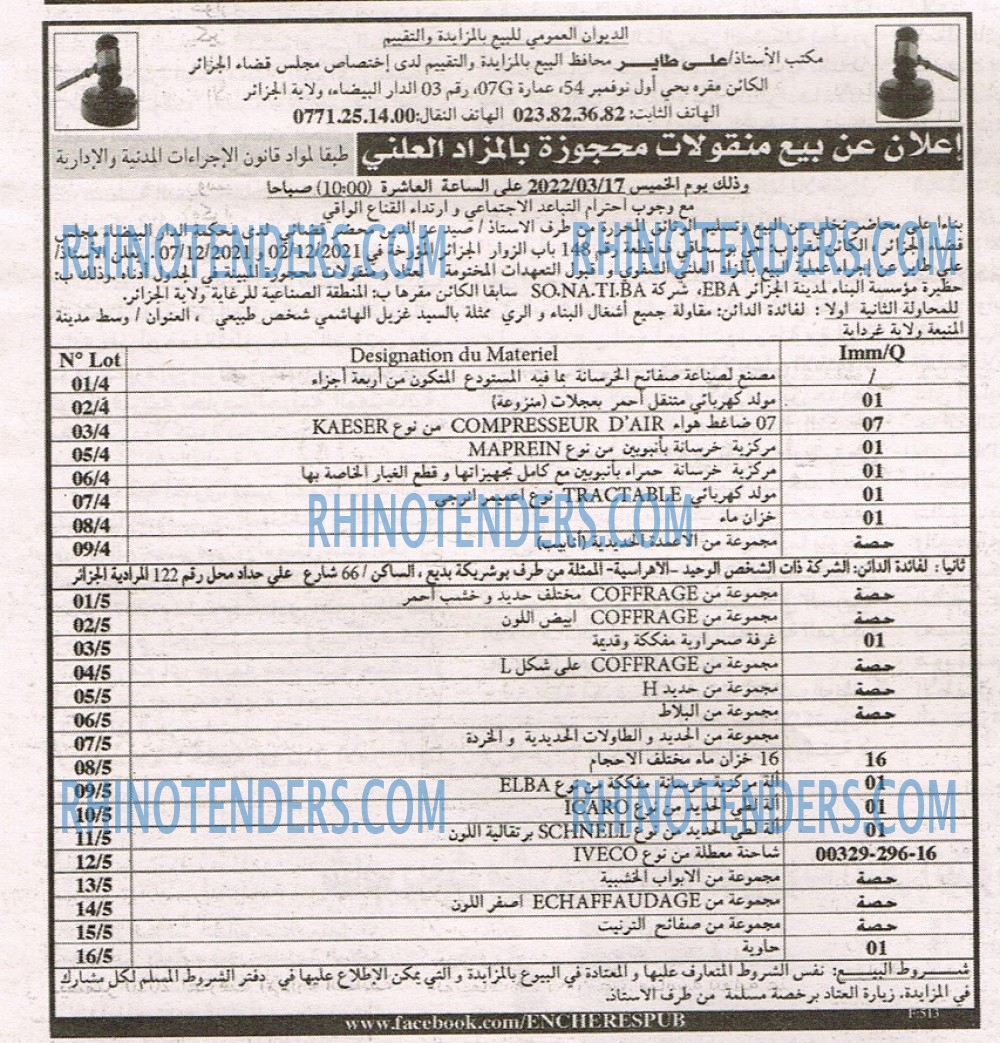 الديوان العمومي للبيع بالمزايدة والتقييم
مكتب الأستاذ/علي طاير محافظ البيع بالمزايدة والتقييم لدى إختصاص مجلس قضاء الجزائر
الكائن مقره بحي أول نوفمبر 54، عمارة 07G، رقم 03 الدار البيضاء، ولاية الجزائر
الهاتف الثابت: 023.82.36.82 الهاتف النقال: 0771.25.14.00
إعلان عن بيع منقولات محجوزة بالمزاد العلني طبقا لمواد قانون الإجراءات المدنية والإدارية
وذلك يوم الخميس 2022/03/17 على الساعة العاشرة (10:00) صباحا
مع وجوب احترام التباعد الاجتماعي و ارتداء القناع الواقي
بناءا على محاضر من طرف الاستاذ / صيد عز الدين محضر قضائي لدى محكمة الدار البيضاء مجلس
قضاء الجزائر، الكائن رقم 148 باب الزوار الجزائر المؤرخة في 02/12/2021 و 07/12/2021.
علي طاير عن إجراء عملية البيع بالمزاد العلني الشفوي و قبول التعهدات المختومة وذلك ب:
حظيرة مؤسسة البناء لمدينة الجزائر EBA، شركة SO.NA.TI.BA سابقا الكائن مقرها ب: المنطقة الصناعية للرغاية ولاية الجزائر.
للمحاولة الثانية اولا : لفائدة الدائن: مقاولة جميع أشغال البناء و الري ممثلة بالسيد غزيل الهاشمي شخص طبيعي ، العنوان / وسط مدينة
المنيعة ولاية غرداية
N° Lot Designation du Materiel Imm/Q
01/4 مصنع لصناعة صفائح الخرسانة بما فيه المستودع المتكون من أربعة أجزاء /
02/4 مولد كهربائي متنقل أحمر بعجلات (منزوعة) 01
03/4 07 ضاغط هواء COMPRESSEUR D'AIR من نوع KAESER 07
05/4 مركزية خرسانة بأنبوبين من نوع MAPREIN 01
06/4 مركزية خرسانة حمراء بأنبوبين مع كامل تجهيزاتها و قطع الغيار الخاصة بها 01
07/4 مولد كهربائي TRACTABLE نوع 01
08/4 خزان ماء 01
09/4 مجموعة من الأعمدة الحديدية (أنابيب) حصة
ثانيا : لفائدة الدائن: الشركة ذات الشخص الوحيد -الاهراسية- الممثلة من طرف بوشريكة بديع، الساكن / 66 شارع علي حداد محل رقم 122 المرادية الجزائر
01/5 مجموعة من COFFRAGE مختلف حديد و خشب أحمر حصة
02/5 مجموعة من COFFRAGE ابيض اللون حصة
03/5 غرفة صحراوية مفككة وقديمة 01
04/5 مجموعة من COFFRAGE على شكل L حصة
05/5 مجموعة من حديد H حصة
06/5 مجموعة من البلاط حصة
07/5 مجموعة من الحديد و الطاولات الحديدية و الخردة
08/5 16 خزان ماء مختلف الاحجام 16
09/5 ألة مركزية خرسانة مفككة من نوع ELBA 01
10/5 ألة لطي الحديد من نوع ICARO 01
11/5 ألة لطي الحديد من نوع SCHNELL برتقالية اللون 01
12/5 شاحنة معطلة من نوع IVECO 00329-296-16
13/5 مجموعة من الابواب الخشبية حصة
14/5 مجموعة من ECHAFFAUDAGE اصفر اللون حصة
15/5 مجموعة من صفائح الترنيت حصة
16/5 حاوية 01
شروط البيع: نفس الشروط المتعارف عليها و المعتادة في البيوع بالمزايدة و التي يمكن الاطلاع عليها في دفتر الشروط المسلم لكل مشارك
في المزايدة. زيارة العتاد برخصة مسلمة من طرف الاستاذ.
F:513
www.facebook.com/ENCHERESPUB
RHINOTENDERS.COM RHINOTENDERS.COM
RHINOTENDERS.COM
RHINOTENDERS.COM RHINOTENDERS.COM